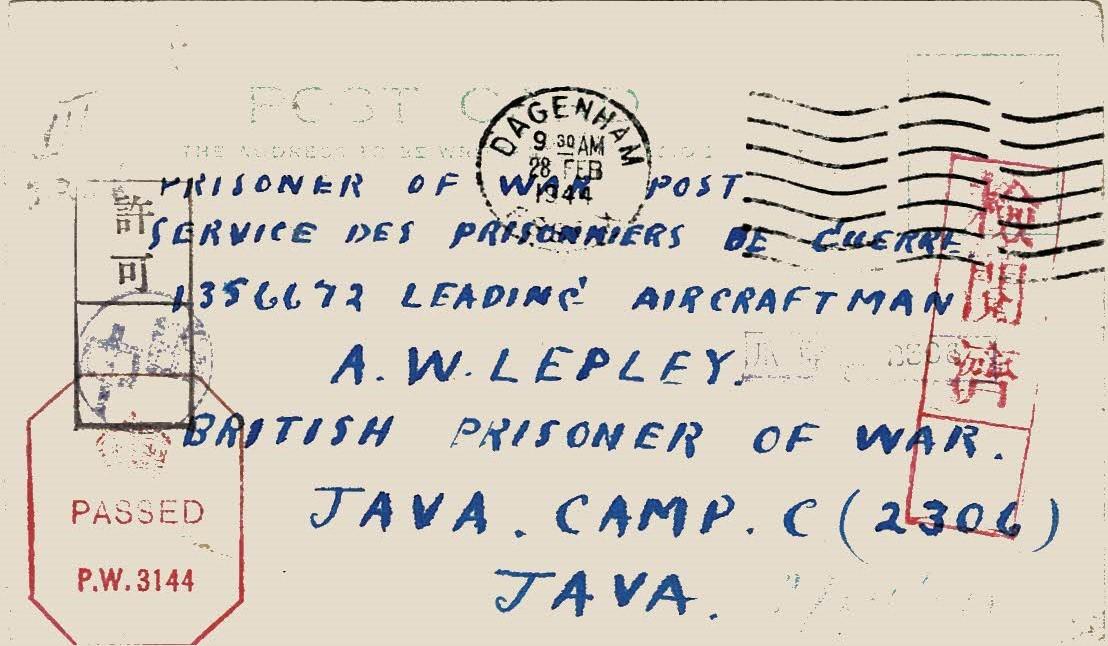 POST CARD
THE ADDRESS TO BE
DAGENHAM
9 30 AM
28 FEB
1944
PRISONER OF WAR POST
SERVICE DES PRISONNIERS DE GUERRE
1356672 LEADING AIRCRAFTMAN
A. W. LEPLEY.
BRITISH PRISONER OF WAR.
JAVA. CAMP. C (2306)
JAVA.
許可
検閲濟
PASSED
P.W. 3144